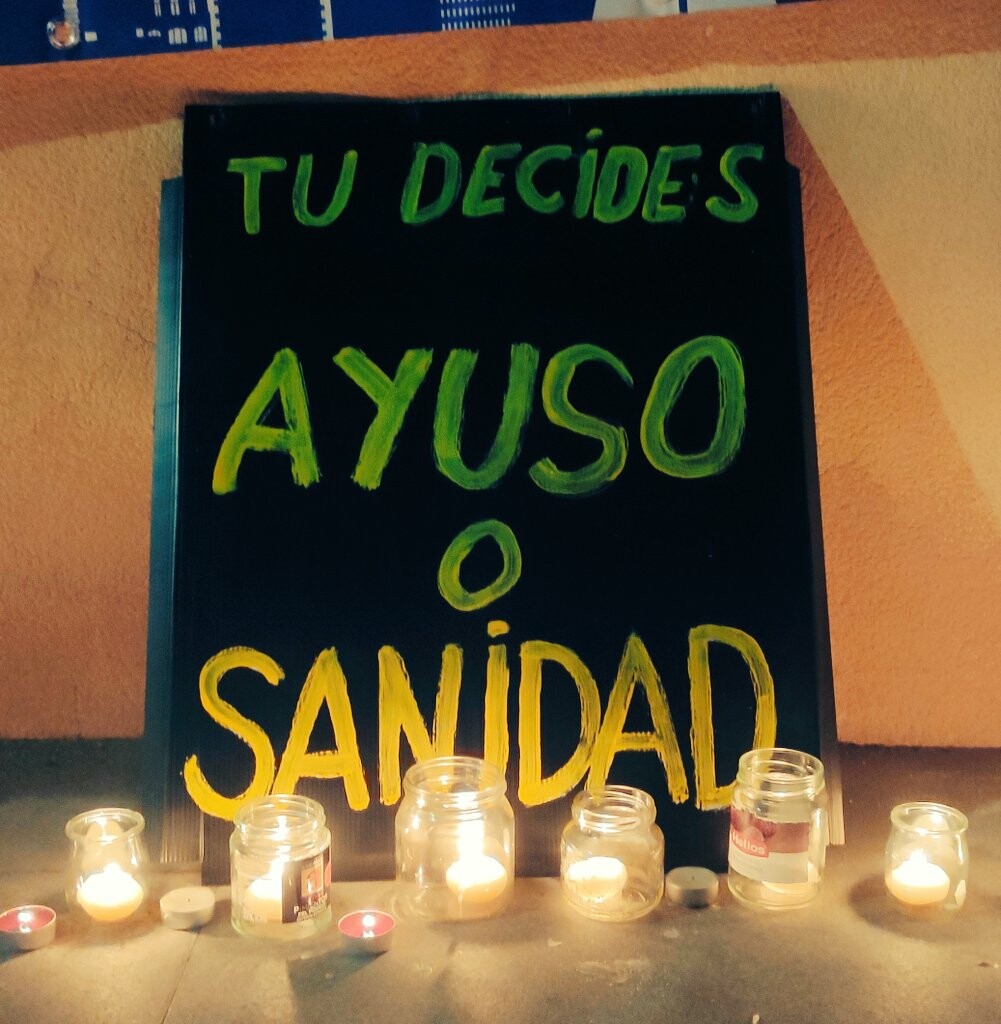 TU DECIDES
AYUSO
O
SANIDAD
Helios